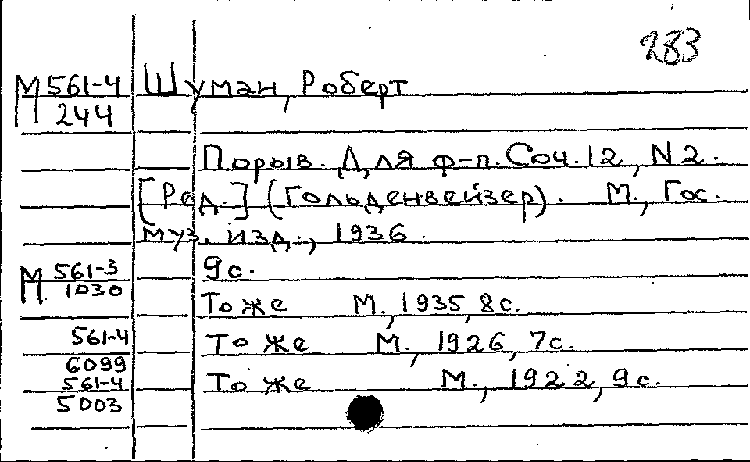 283
М 561-4 Шуман, Роберт
244
Порыв. Для ф-п. Соч. 12, N2.
[Ред.] (Гольденвейзер). М., Гос.
муз. изд., 1936.
М 561-3 9с.
1030
То же М., 1935, 8с.
561-4 То же М., 1926, 7с.
6099
561-4 То же М., 1922, 9с.
5003